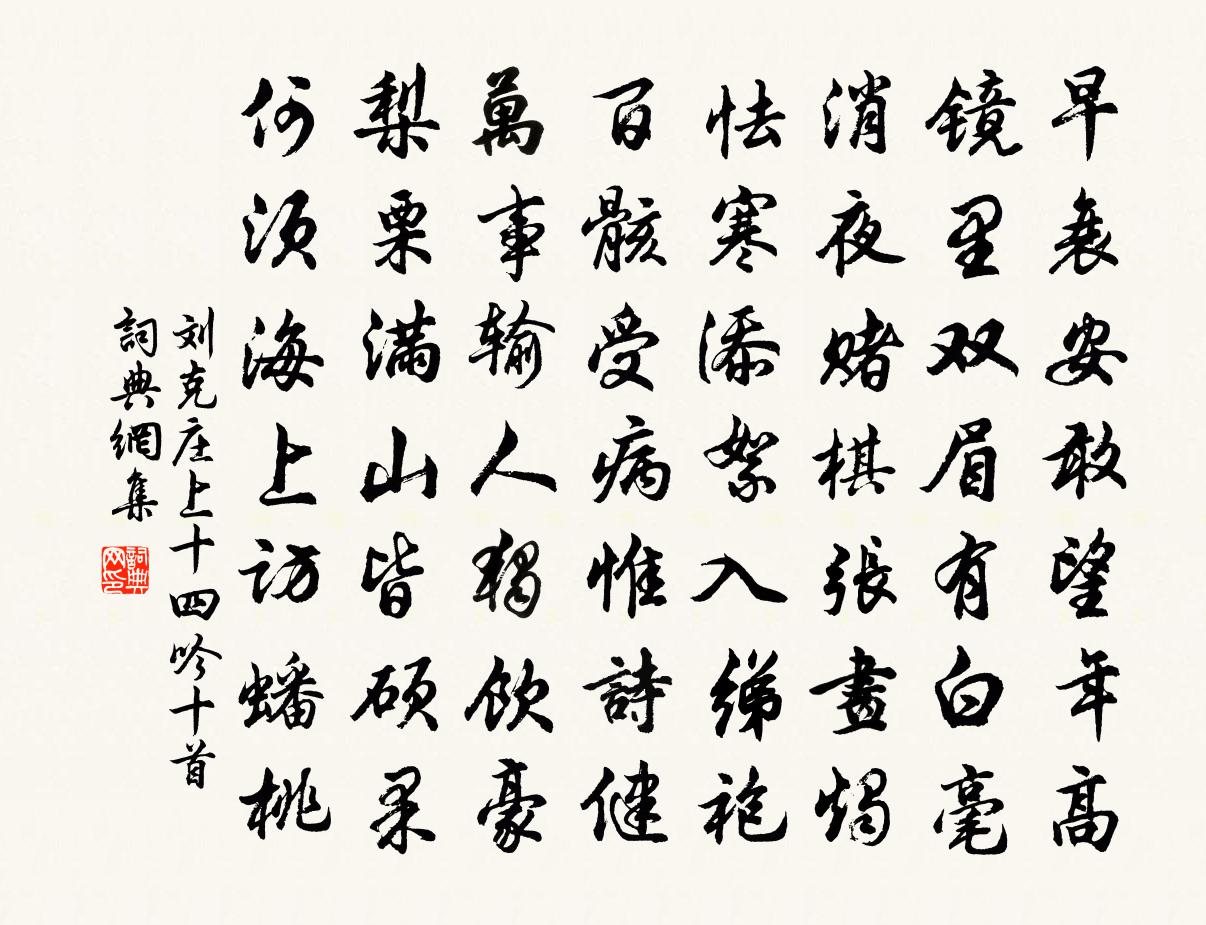 早衰安敢望年高
镜里双眉有白毫
消夜赌棋張畫燭
怯寒添絮入绨袍
百骸受病惟詩健
萬事输人独飲豪
梨栗满山皆硕果
何须海上访蟠桃
刘克庄上十四吟十首
詞典網集
詞典网印